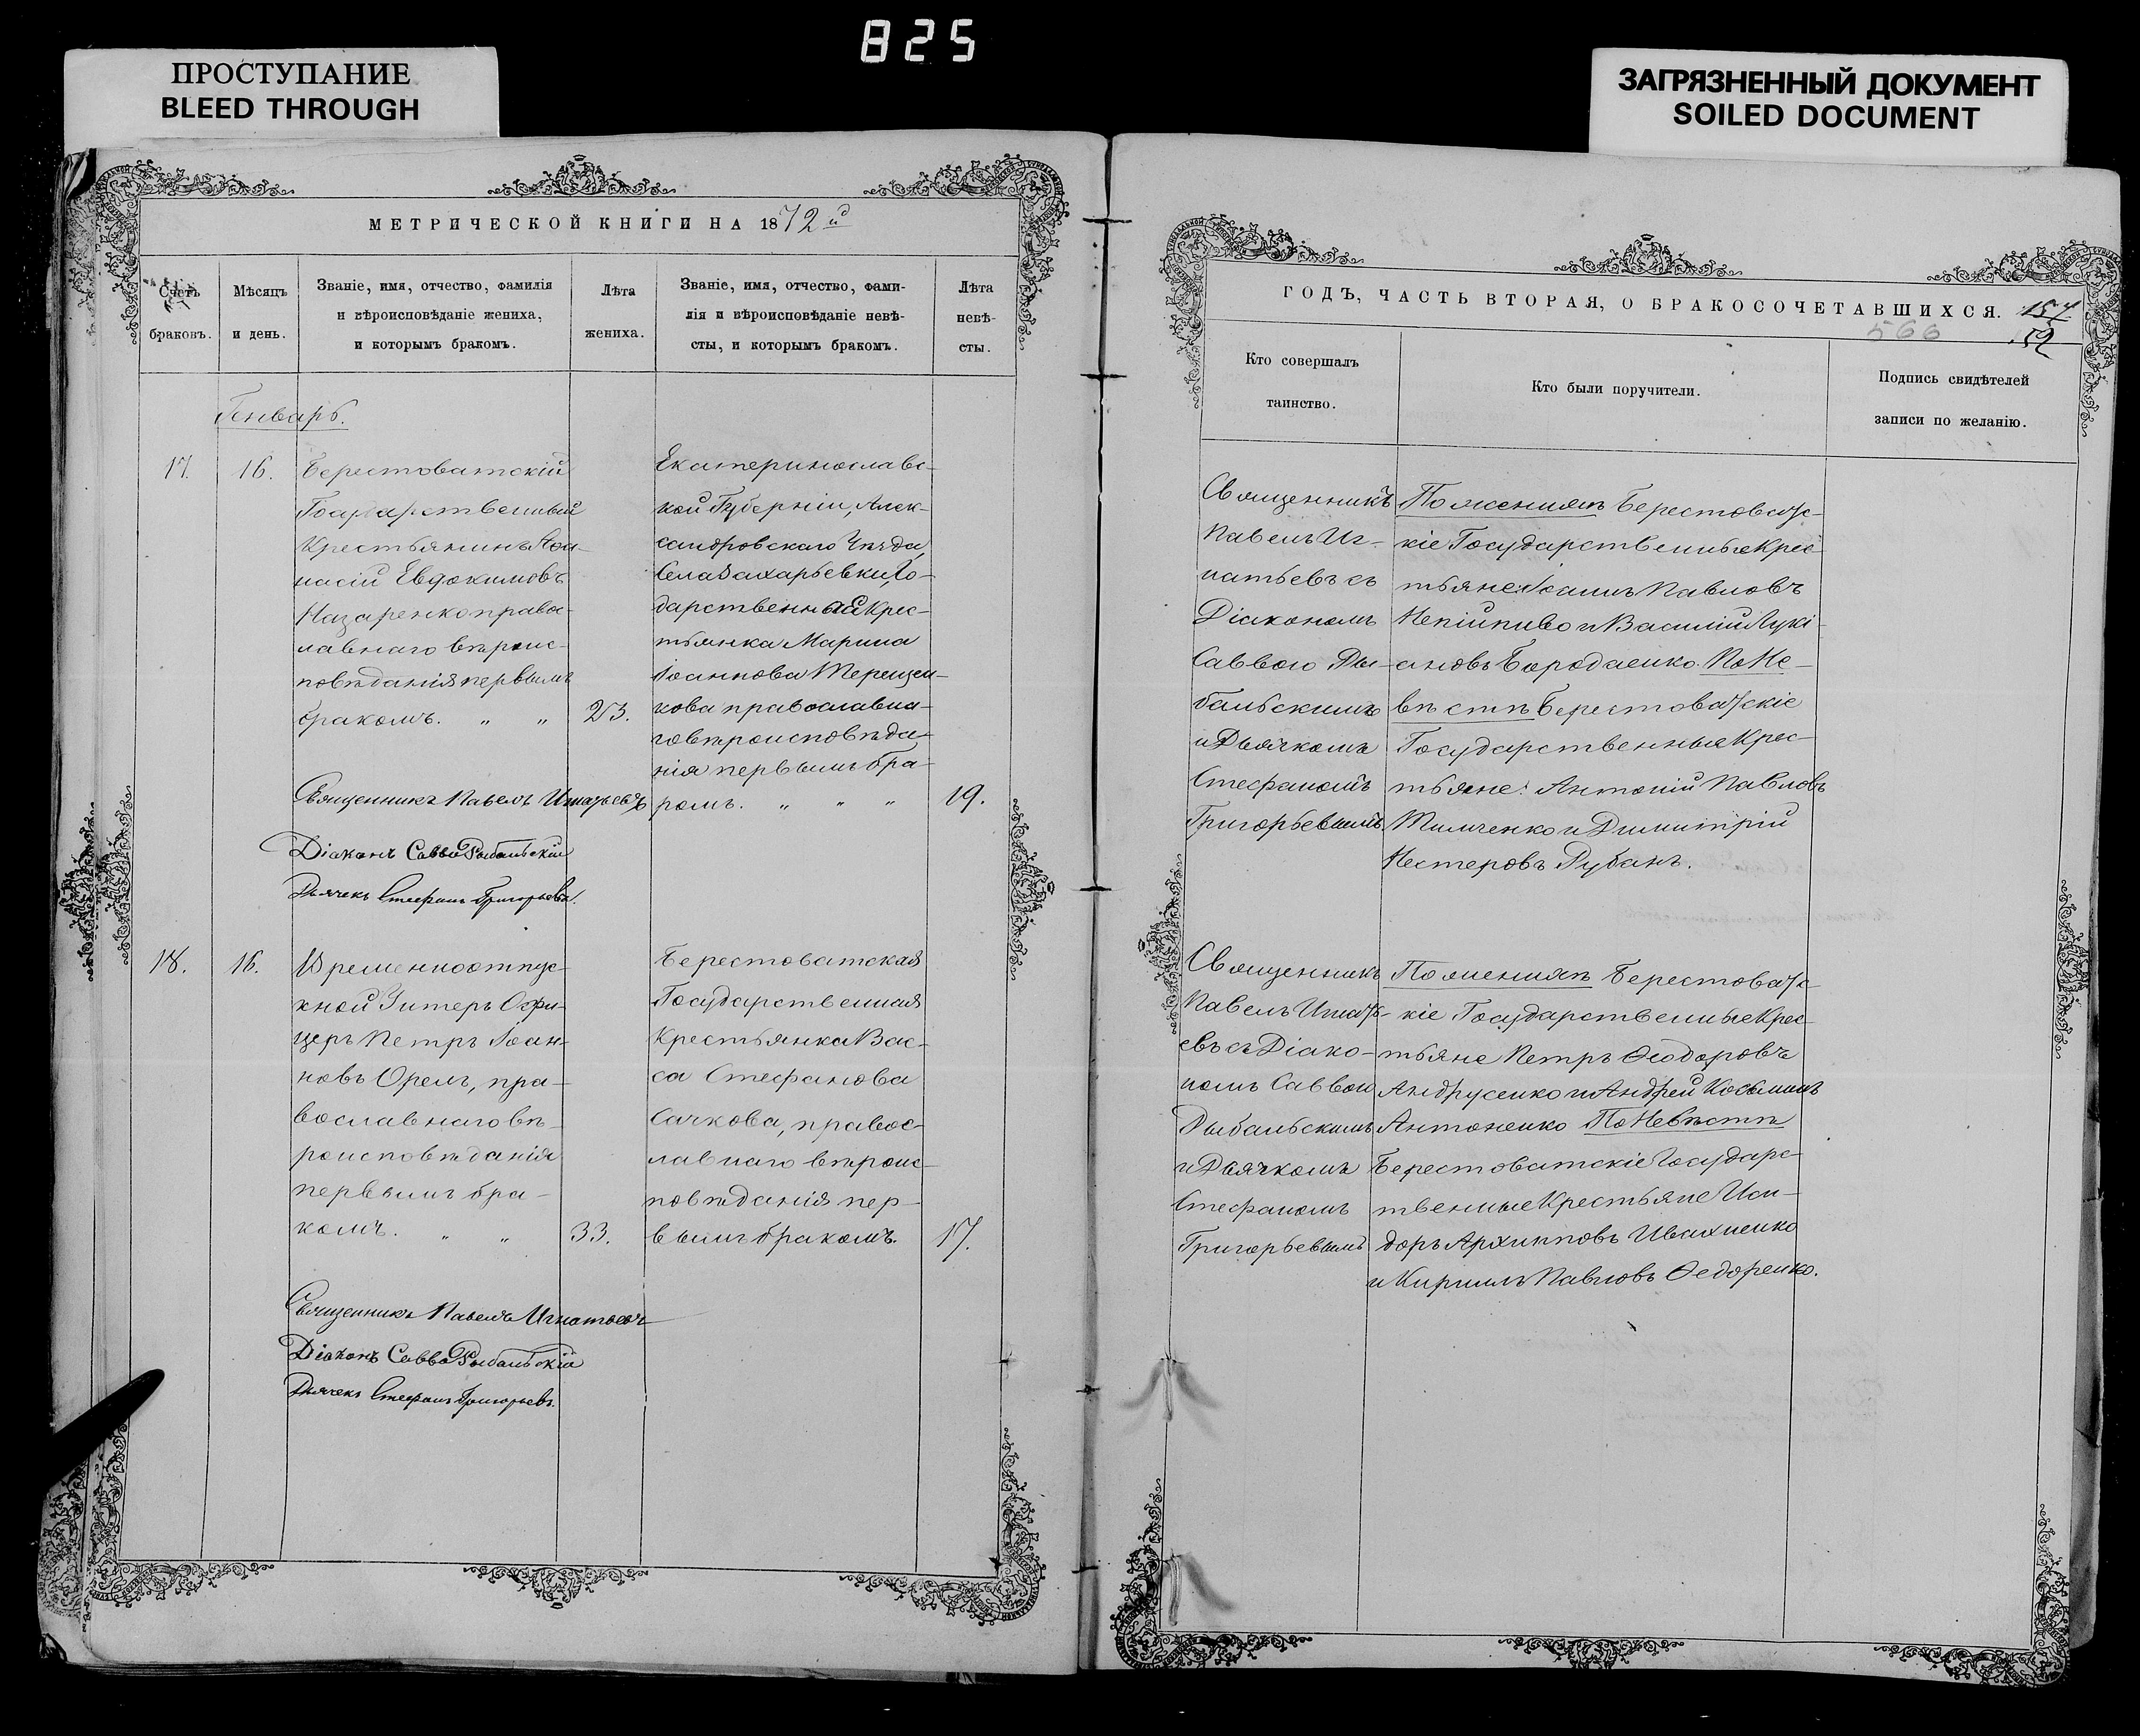 825
ПРОСТУПАНИЕ
BLEED THROUGH
ЗАГРЯЗНЕННЫЙ ДОКУМЕНТ
SOILED DOCUMENT
МЕТРИЧЕСКОЙ КНИГИ НА 1872 й
Счетъ браковъ.
Мѣсяцъ и день.
Званіе, имя, отчество, фамилія
и вѣроисповѣданіе жениха,
и которымъ бракомъ.
Лѣта жениха.
Званіе, имя, отчество, фами-
лія и вѣроисповѣданіе невѣ-
сты, и которымъ бракомъ.
Лѣта невѣ-
сты.
Генварь.
17.
16.
Берестоватскій
Государственный
Крестьянинъ Аѳа-
насій Евфокимовъ
Назаренко правос-
лавнаго вѣроис-
повѣданія первымъ
бракомъ. „ „
23.
Екатеринославс-
кой Губерніи, Алек-
сандровскаго Уѣзда,
Села Захарьевки, Го-
дарственная Крес-
тьянка Марина
Іоаннова Терещен-
кова православна-
го вѣроисповѣда-
нія первымъ бра-
ромъ. „ „ „
19.
Священникъ Павелъ Игнатьевъ
Діаконъ Савва Рыбальскій
Дьячекъ Стефанъ Григорьевъ.
18.
16.
Временноотпус-
кной Унтеръ Офи-
церъ Петръ Іоан-
новъ Орелъ, пра-
вославнаго вѣ-
роисповѣданія
первымъ бра-
комъ. „ „
33.
Берестоватская
Государственная
Крестьянка Вас-
са Стефанова
Сачкова, правос-
лавнаго вѣроис-
повѣданія пер-
вымъ бракомъ.
17.
Священникъ Павелъ Игнатьевъ
Діаконъ Савва Рыбальскій
Дьячекъ Стефанъ Григорьевъ.
ГОДЪ, ЧАСТЬ ВТОРАЯ, О БРАКОСОЧЕТАВШИХСЯ.
157
566
152
Кто совершалъ
таинство.
Кто были поручители.
Подпись свидѣтелей
записи по желанію.
Священникъ
Павелъ Иг-
натьевъ съ
Діакономъ
Саввою Ры-
бальскимъ
и Дьячкомъ
Стефаномъ
Григорьевымъ.
По женихѣ Берестоватс-
кіе Государственные Крес-
тьяне: Іоаннъ Павловъ
Непійпиво и Василій Лукі-
ановъ Бородаенко. По Не-
вѣстѣ Берестоватскіе
Государственные Крес-
тьяне: Антоній Павловъ
Тимченко и Димитрій
Нестеровъ Рубанъ.
Священникъ
Павелъ Игнать-
евъ съ Діако-
номъ Саввою
Рыбальскимъ
и Дьячкомъ
Стефаномъ
Григорьевымъ
По женихѣ Берестоватс-
кіе Государственные Крес-
тьяне Петръ Ѳеодоровъ
Андрусенко и Андрей Косьминъ
Антоненко По Невѣстѣ
Берестоватскіе Государс-
твенные Крестьяне Иси-
доръ Архиповъ Ивахненко
и Кириллъ Павловъ Ѳедоренко.